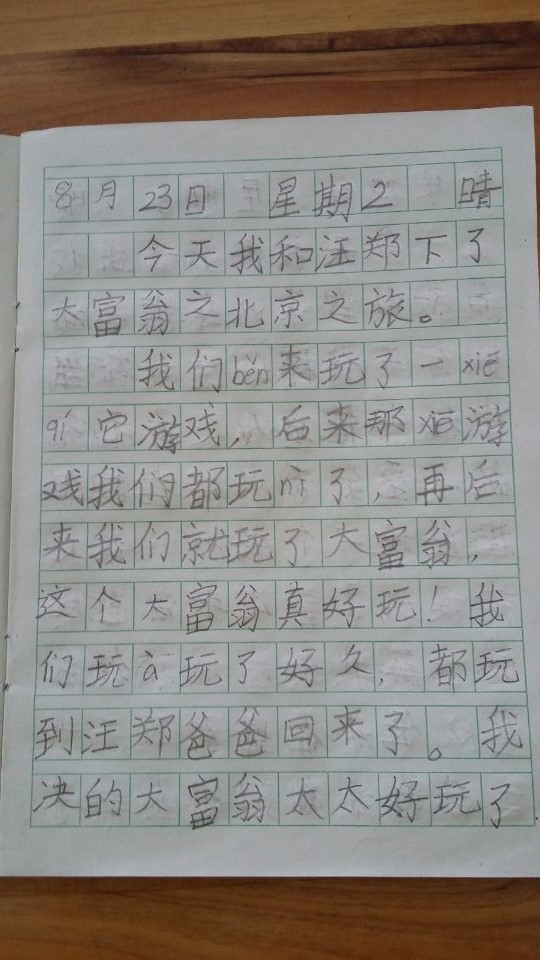 8月23日 星期2 晴
今天我和汪郑下了
大富翁之北京之旅。
我们běn来玩了一xiē
qí它游戏，后来那xiē游
戏我们都玩nì了，再后
来我们就玩了大富翁，
这个大富翁真好玩！我
们玩à玩了好久，都玩
到汪郑爸爸回来了。我
决的大富翁太太好玩了